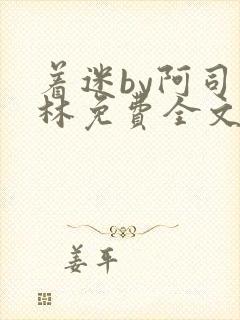 着迷by阿司
林免费全文
姜平